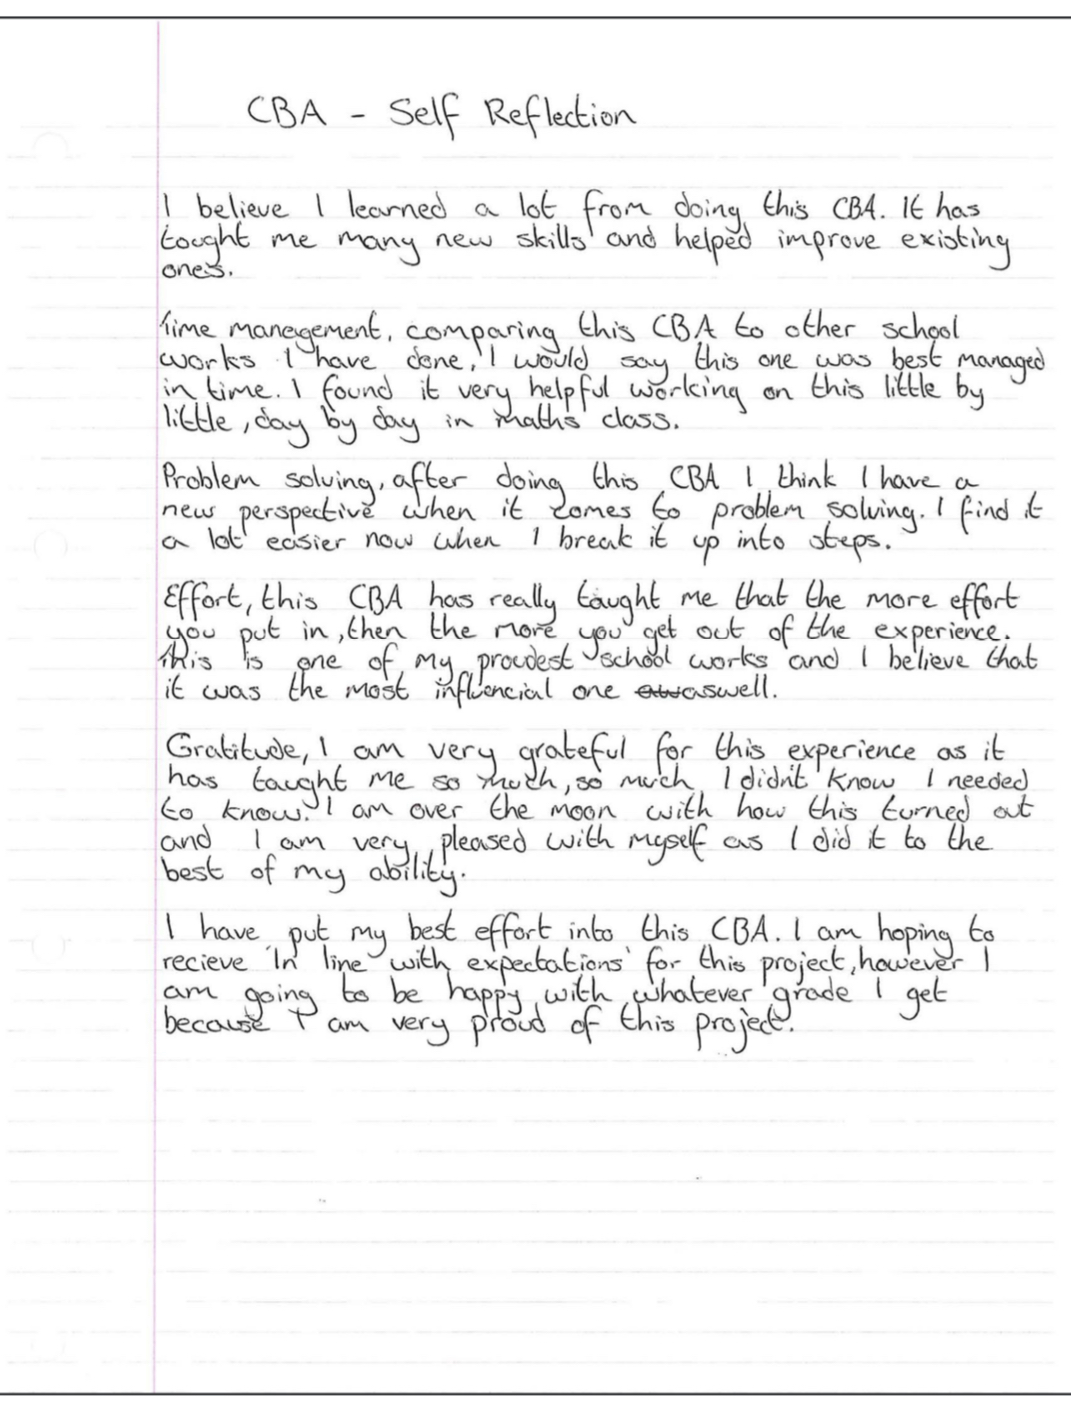 CBA - Self Reflection
I believe I learned a lot from doing this CBA. It has
tought me many new skills and helped improve existing
ones.
Time manegement, comparing this CBA to other school
works I have done, I would say this one was best managed
in time. I found it very helpful working on this little by
little, day by day in maths class.
Problem solving, after doing this CBA I think I have a
new perspective when it comes to problem solving. I find it
a lot easier now when I break it up into steps.
Effort, this CBA has really taught me that the more effort
you put in, then the more you get out of the experience.
This is one of my proudest school works and I believe that
it was the most influencial one aswell.
Gratitude, I am very grateful for this experience as it
has taught me so much, so much I didn't know I needed
to know. I am over the moon with how this turned out
and I am very pleased with myself as I did it to the
best of my ability.
I have put my best effort into this CBA. I am hoping to
recieve 'In line with expectations' for this project, however I
am going to be happy with whatever grade I get
because I am very proud of this project.